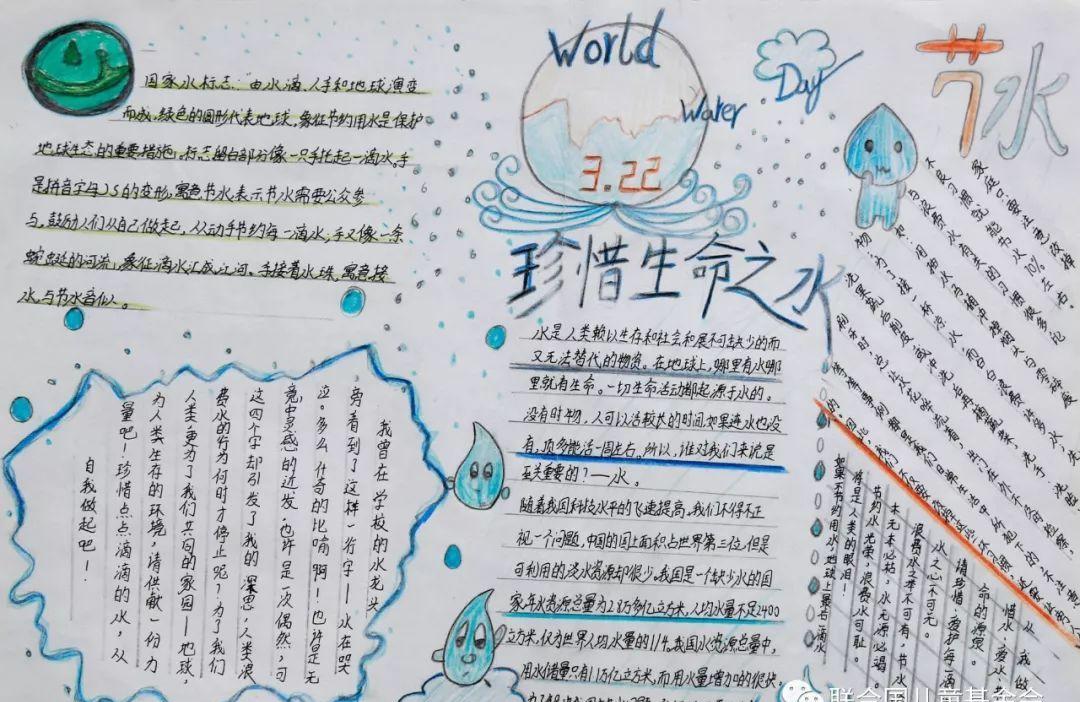 World
Water
Day
3.22
节水
珍惜生命之水
国家水标志："由水滴、人手和地球演变
而成，绿色的圆形代表地球，象征节约用水是保护
地球生态的重要措施。标志留白部分像一只手托起一滴水。手
是拼音字母JS的变形，寓意节水表示节水需要公众参
与，鼓励人们从自己做起，从动手节约每一滴水；手又像一条
蜿蜒的河流，象征滴水汇成江河。手接着水珠，寓意接
水，与节水音似。
我曾在学校的水龙头
旁看到了这样一行字——水在哭
泣。多么什奇的比喻啊！也许是无
竟中灵感的迸发，也许是一次偶然，可
这四个字却引发了我的深思，人类浪
费水的行为何时才停止呢？为了我们
人类，更为了我们共同的家园——地球，
为人类生存的环境，请供献一份力
量吧！珍惜点点滴滴的水，从
自我做起吧！
水是人类赖以生存和社会和展不可缺少的而
又无法替代的物资。在地球上，哪里有水哪
里就有生命。一切生命活动都起源于水的。
没有时物，人可以活较长的时间，如果连水也没
有，顶多能活一周左右。所以，谁对我们来说是
至关重要的？——水。
随着我国科技水平的飞速提高。我们不得不正
视一个问题，中国的国土面积占世界第三位，但是
可利用的淡水资源却很少。我国是一个缺少水的国
家，年水资源总量为2.8万多亿立方米，人均水量不足2400
立方米，仅为世界人均水量的1/4。我国水资源总量中，
用水储量只有1.1万亿立方米，而用水量增加的很快。
家庭只要注意改掉
不良习惯，就能节水70%左右。
与浪费水有关的习惯很多，比
如：用抽水马桶冲掉烟头与零碎废
物；为了接一杯凉水，而白白浪费许多水；先
惜水、爱水、节
水，从我做
命的源泉。
请珍惜、爱护每一滴
水之心不可无。
浪费水之举不可有，节水
本无本必枯，水无源必竭。
节约水光荣，浪费水可耻。
将是人类的眼泪！
如果不节约用水，地球上最后一滴水
联合国儿童基金会